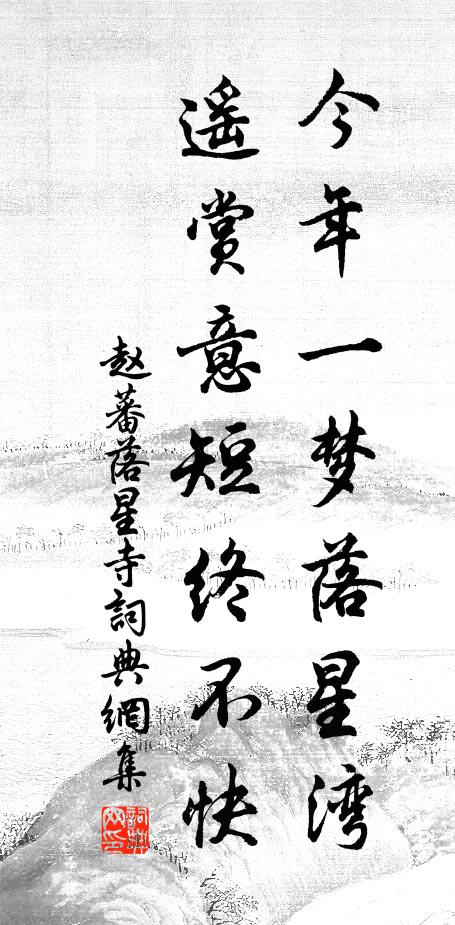 今年一梦落星湾
遥赏意短终不快
赵蕃落星寺詞典網集